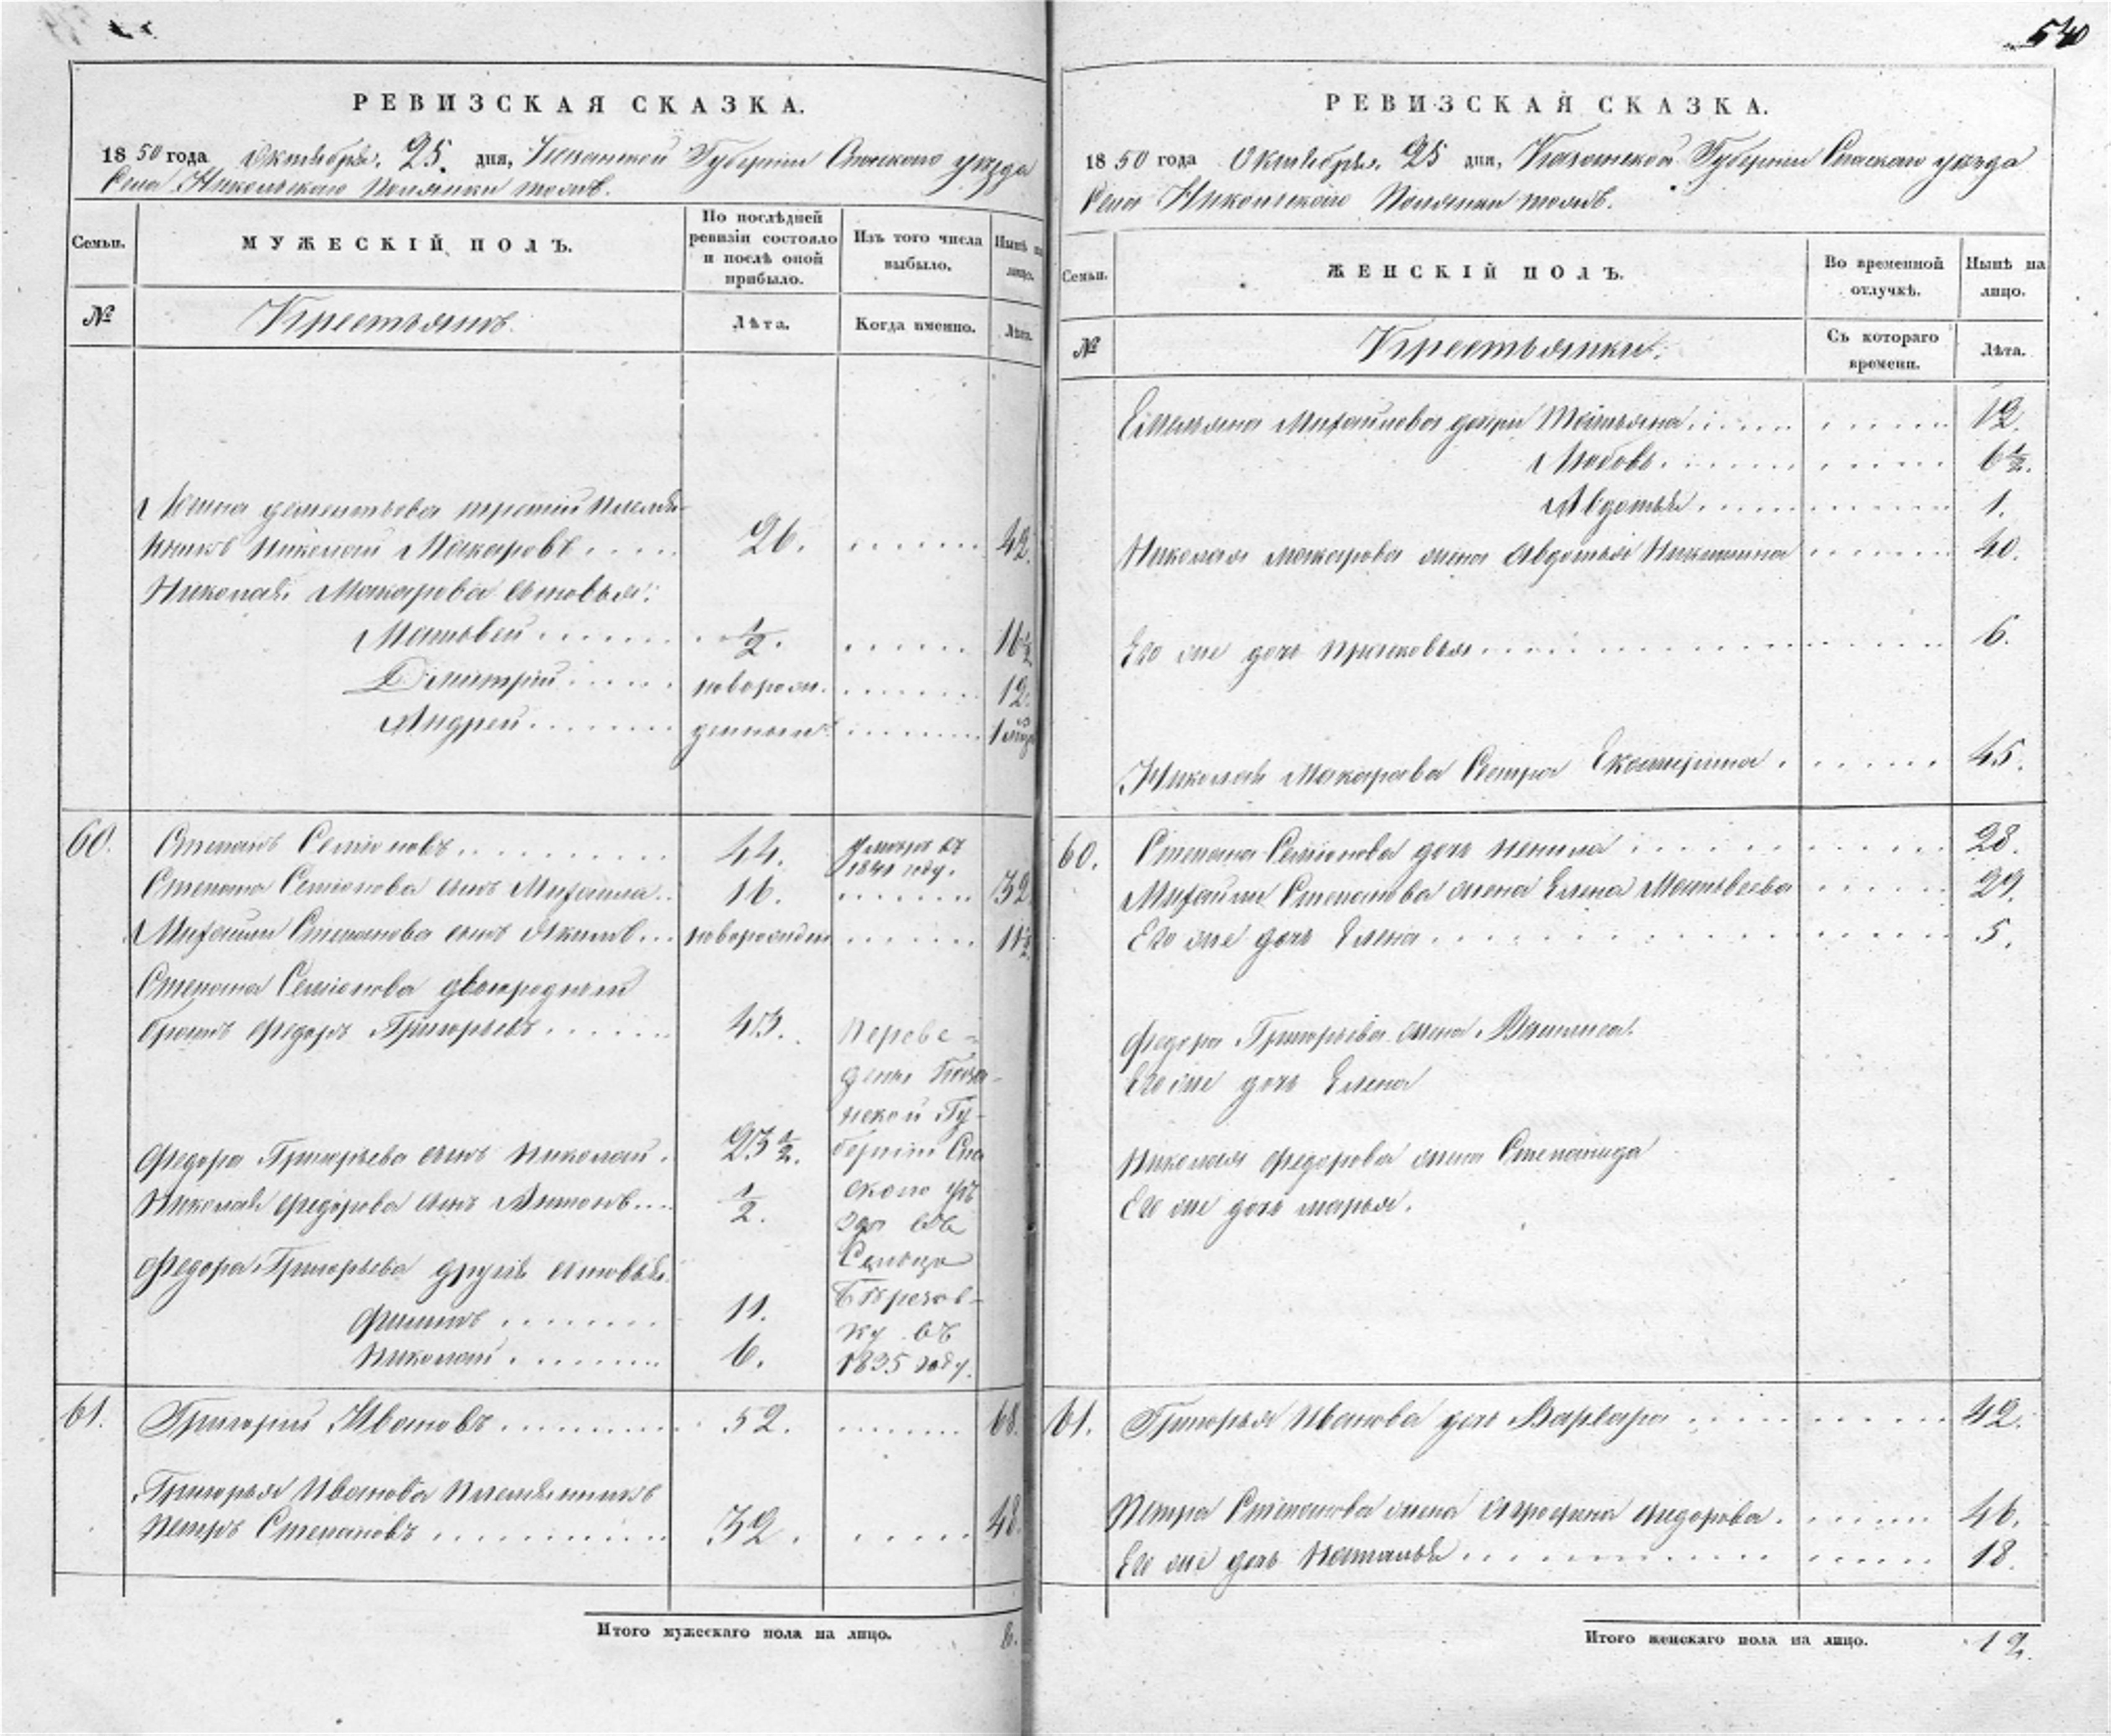 540
РЕВИЗСКАЯ СКАЗКА.
1850 года Октября 25 дня, Казанской Губернии Спаского уезда
Села Никольскаго Полянки тожъ.
Семьи.
МУЖЕСКІЙ ПОЛЪ.
По послѣдней ревизіи состояло и послѣ оной прибыло.
Изъ того числа выбыло.
Нынѣ на лицо.
№
Крестьянъ.
Лѣта.
Когда именно.
Лѣта.
дементьева третій племян-
никъ Николай Макаровъ 26. 42.
Николая Макарова сыновья:
Матвей ½. 16½
Дмитрій новорож. 12.
Андрей денныи 1
60. Степанъ Семіоновъ 44. умеръ въ 1841 году.
Степана Семіонова сынъ Михаила 16. 32
Михаилы Степанова сынъ Акимъ новорожден 11½
Степана Семіонова двоюродный
братъ Федоръ Григорьевъ 43. Переве-
денъ Казан-
ской Гу-
Федора Григорьева сынъ Николай. 23½. берніи Спа
Николая Федорова сынъ Антонъ ½. скаго уѣ
зда въ
Федора Григорьева другія сыновья Сельцо
Филипъ 11. Березов-
ку въ
Николай 6. 1835 году.
61. Григорій Ивановъ 52. 68.
Григорья Иванова племянникъ
Петръ Степановъ 32. 48.
Итого мужескаго пола на лицо. 8.
РЕВИЗСКАЯ СКАЗКА.
1850 года Октября 25 дня, Казанской Губерніи Спаскаго уезда
Села Никольскаго Полянки тожъ.
Семьи.
ЖЕНСКІЙ ПОЛЪ.
Во временной отлучкѣ.
Нынѣ на лицо.
№
Крестьянки.
Съ котораго времени.
Лѣта.
Емельяна Михайлова дочери Татьяна 12.
Любовь 6½.
Авдотья 1.
Николая Макарова жена Авдотья Никитина 40.
Его же дочь Прасковья 6.
Николая Макарова Сестра Екатерина 45.
60. Степана Семіонова дочь 28.
Михаилы Степанова жена Елена Матвеева 29.
Его же дочь Елена 5.
Федора Григорьева жена Василиса.
Его же дочь Елена
Николая Федорова жена Степанида
Его же дочь марья.
61. Григорья Иванова дочь Варвара 42.
Петра Степанова жена Федорова 46.
Его же дочь Наталья 18.
Итого женскаго пола на лицо. 12.